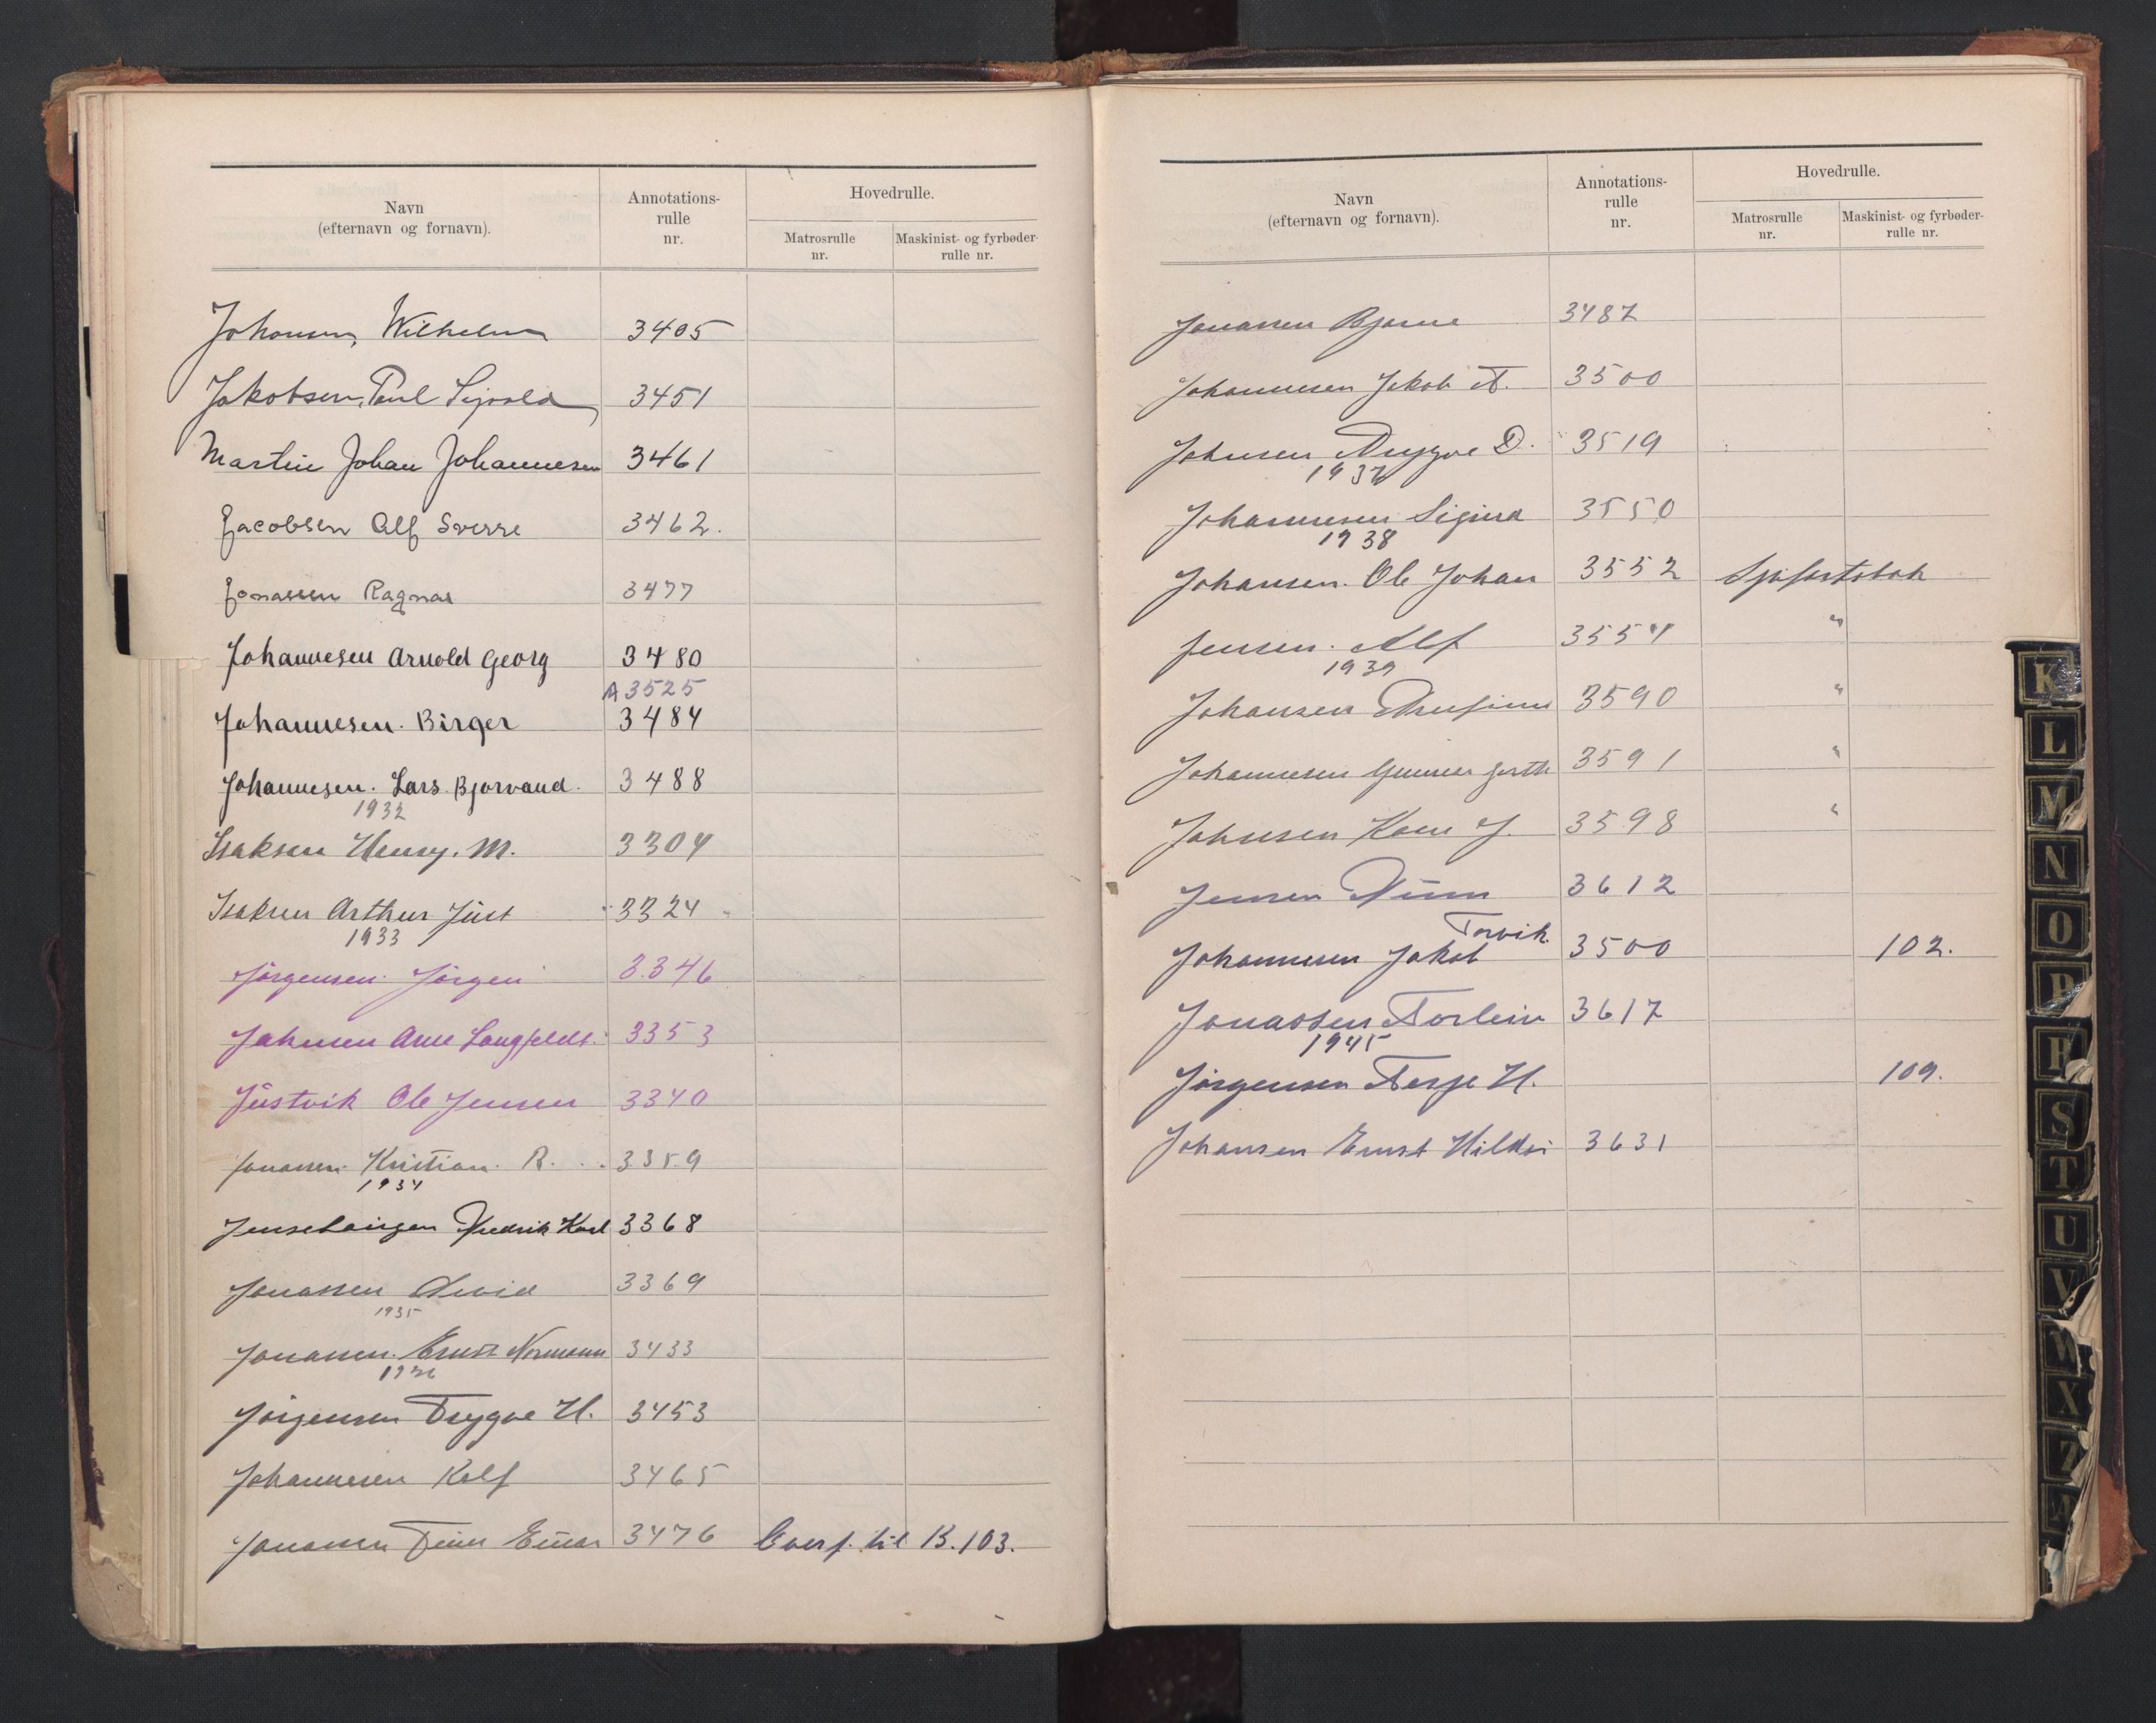 Navn
(efternavn og fornavn).
Annotations-
rulle
nr.
Hovedrulle.
Matrosrulle
nr.
Maskinist- og fyrbøder-
rulle nr.
Johansen, Wilhelm 3405
Jakobsen, Paul Sigvald 3451
Martin Johan Johannesen 3461
Jacobsen Alf Sverre 3462.
Jonassen Ragnar 3477
Johannesen Arnold Georg 3480
A 3525
Johannesen. Birger 3484
Johannesen. Lars Bjorvand. 3488
1932
Isaksen Henry. M. 3304
Isaksen Arthur Just 3324
1933
Jørgensen. Jørgen 3346
Johnsen Arne Langfeldt. 3353
Justvik Ole Jensen 3340
Jonassen. Kristian. R. 3359
1934
Fredrik Karl 3368
Jonassen 3369
1935
Jonassen. Ernst Normann 3433
1936
Jørgensen Trygve H. 3453
Johannesen Rolf 3465
Jonassen Finn Einar 3476 Overf. til B. 103.
Navn
(efternavn og fornavn).
Annotations-
rulle
nr.
Hovedrulle.
Matrosrulle
nr.
Maskinist- og fyrbøder-
rulle nr.
Jonassen Bjarne 3487
Johannesen Jakob T. 3500
Johnsen Trygve D. 3519
1937
Johannesen Sigurd 3550
1938
Johansen. Ole Johan 3552 Sjøfartsbok
Jensen. Alf 3554 "
1939
Johansen 3590 "
Johannesen Gunnar 3591 "
Johnsen J. 3598 "
Jensen Finn 3612
Torvik.
Johannesen Jakob 3500 102.
Jonassen Torleiv 3617
1945
Jørgensen Terje H. 109.
Johansen Ernst 3631
K
L
M
N
O
P
R
S
T
U
V
W
X
Z